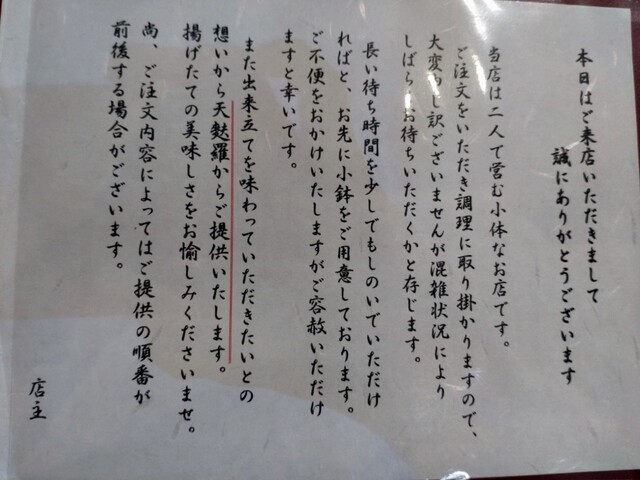 本日はご来店いただきまして
誠にありがとうございます
当店は二人で営む小体なお店です。
ご注文をいただき調理に取り掛かりますので、
大変申し訳ございませんが混雑状況により
しばらくお待ちいただくかと存じます。
長い待ち時間を少しでもしのいでいただけ
ればと、お先に小鉢をご用意しております。
ご不便をおかけいたしますがご容赦いただけ
ますと幸いです。
また出来立てを味わっていただきたいとの
想いから天麩羅からご提供いたします。
揚げたての美味しさをお愉しみくださいませ。
尚、ご注文内容によってはご提供の順番が
前後する場合がございます。
店主